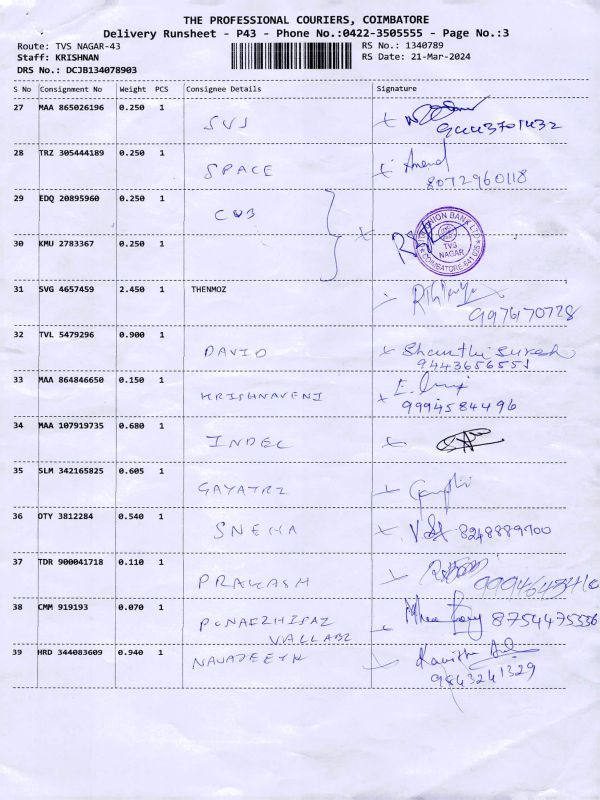 THE PROFESSIONAL COURIERS, COIMBATORE
Delivery Runsheet - P43 - Phone No.:0422-3505555 - Page No.:3
Route: TVS NAGAR-43 RS No.: 1340789
Staff: KRISHNAN RS Date: 21-Mar-2024
DRS No.: DCJB134078903
S No Consignment No Weight PCS Consignee Details Signature
27 MAA 865026196 0.250 1 SVS
9443701432
28 TRZ 305444189 0.250 1 SPACE Anand
8072960118
29 EDQ 20895960 0.250 1 CUB
UNION BANK LTD
TVS NAGAR
COIMBATORE
30 KMU 2783367 0.250 1
31 SVG 4657459 2.450 1 THENMOZ
9976170728
32 TVL 5479296 0.900 1 DAVID Shanthi Suresh
9443656551
33 MAA 864846650 0.150 1 KRISHNAVENI
9994584496
34 MAA 107919735 0.680 1 INDEL
35 SLM 342165825 0.605 1 GAYATRI
36 OTY 3812284 0.540 1 SNEHA 8248889700
37 TDR 900041718 0.110 1 PRAKASH
38 CMM 919193 0.070 1 8754475536
VALLABI
39 HRD 344083609 0.940 1 NAVAJEETH Kavitha
9843241329